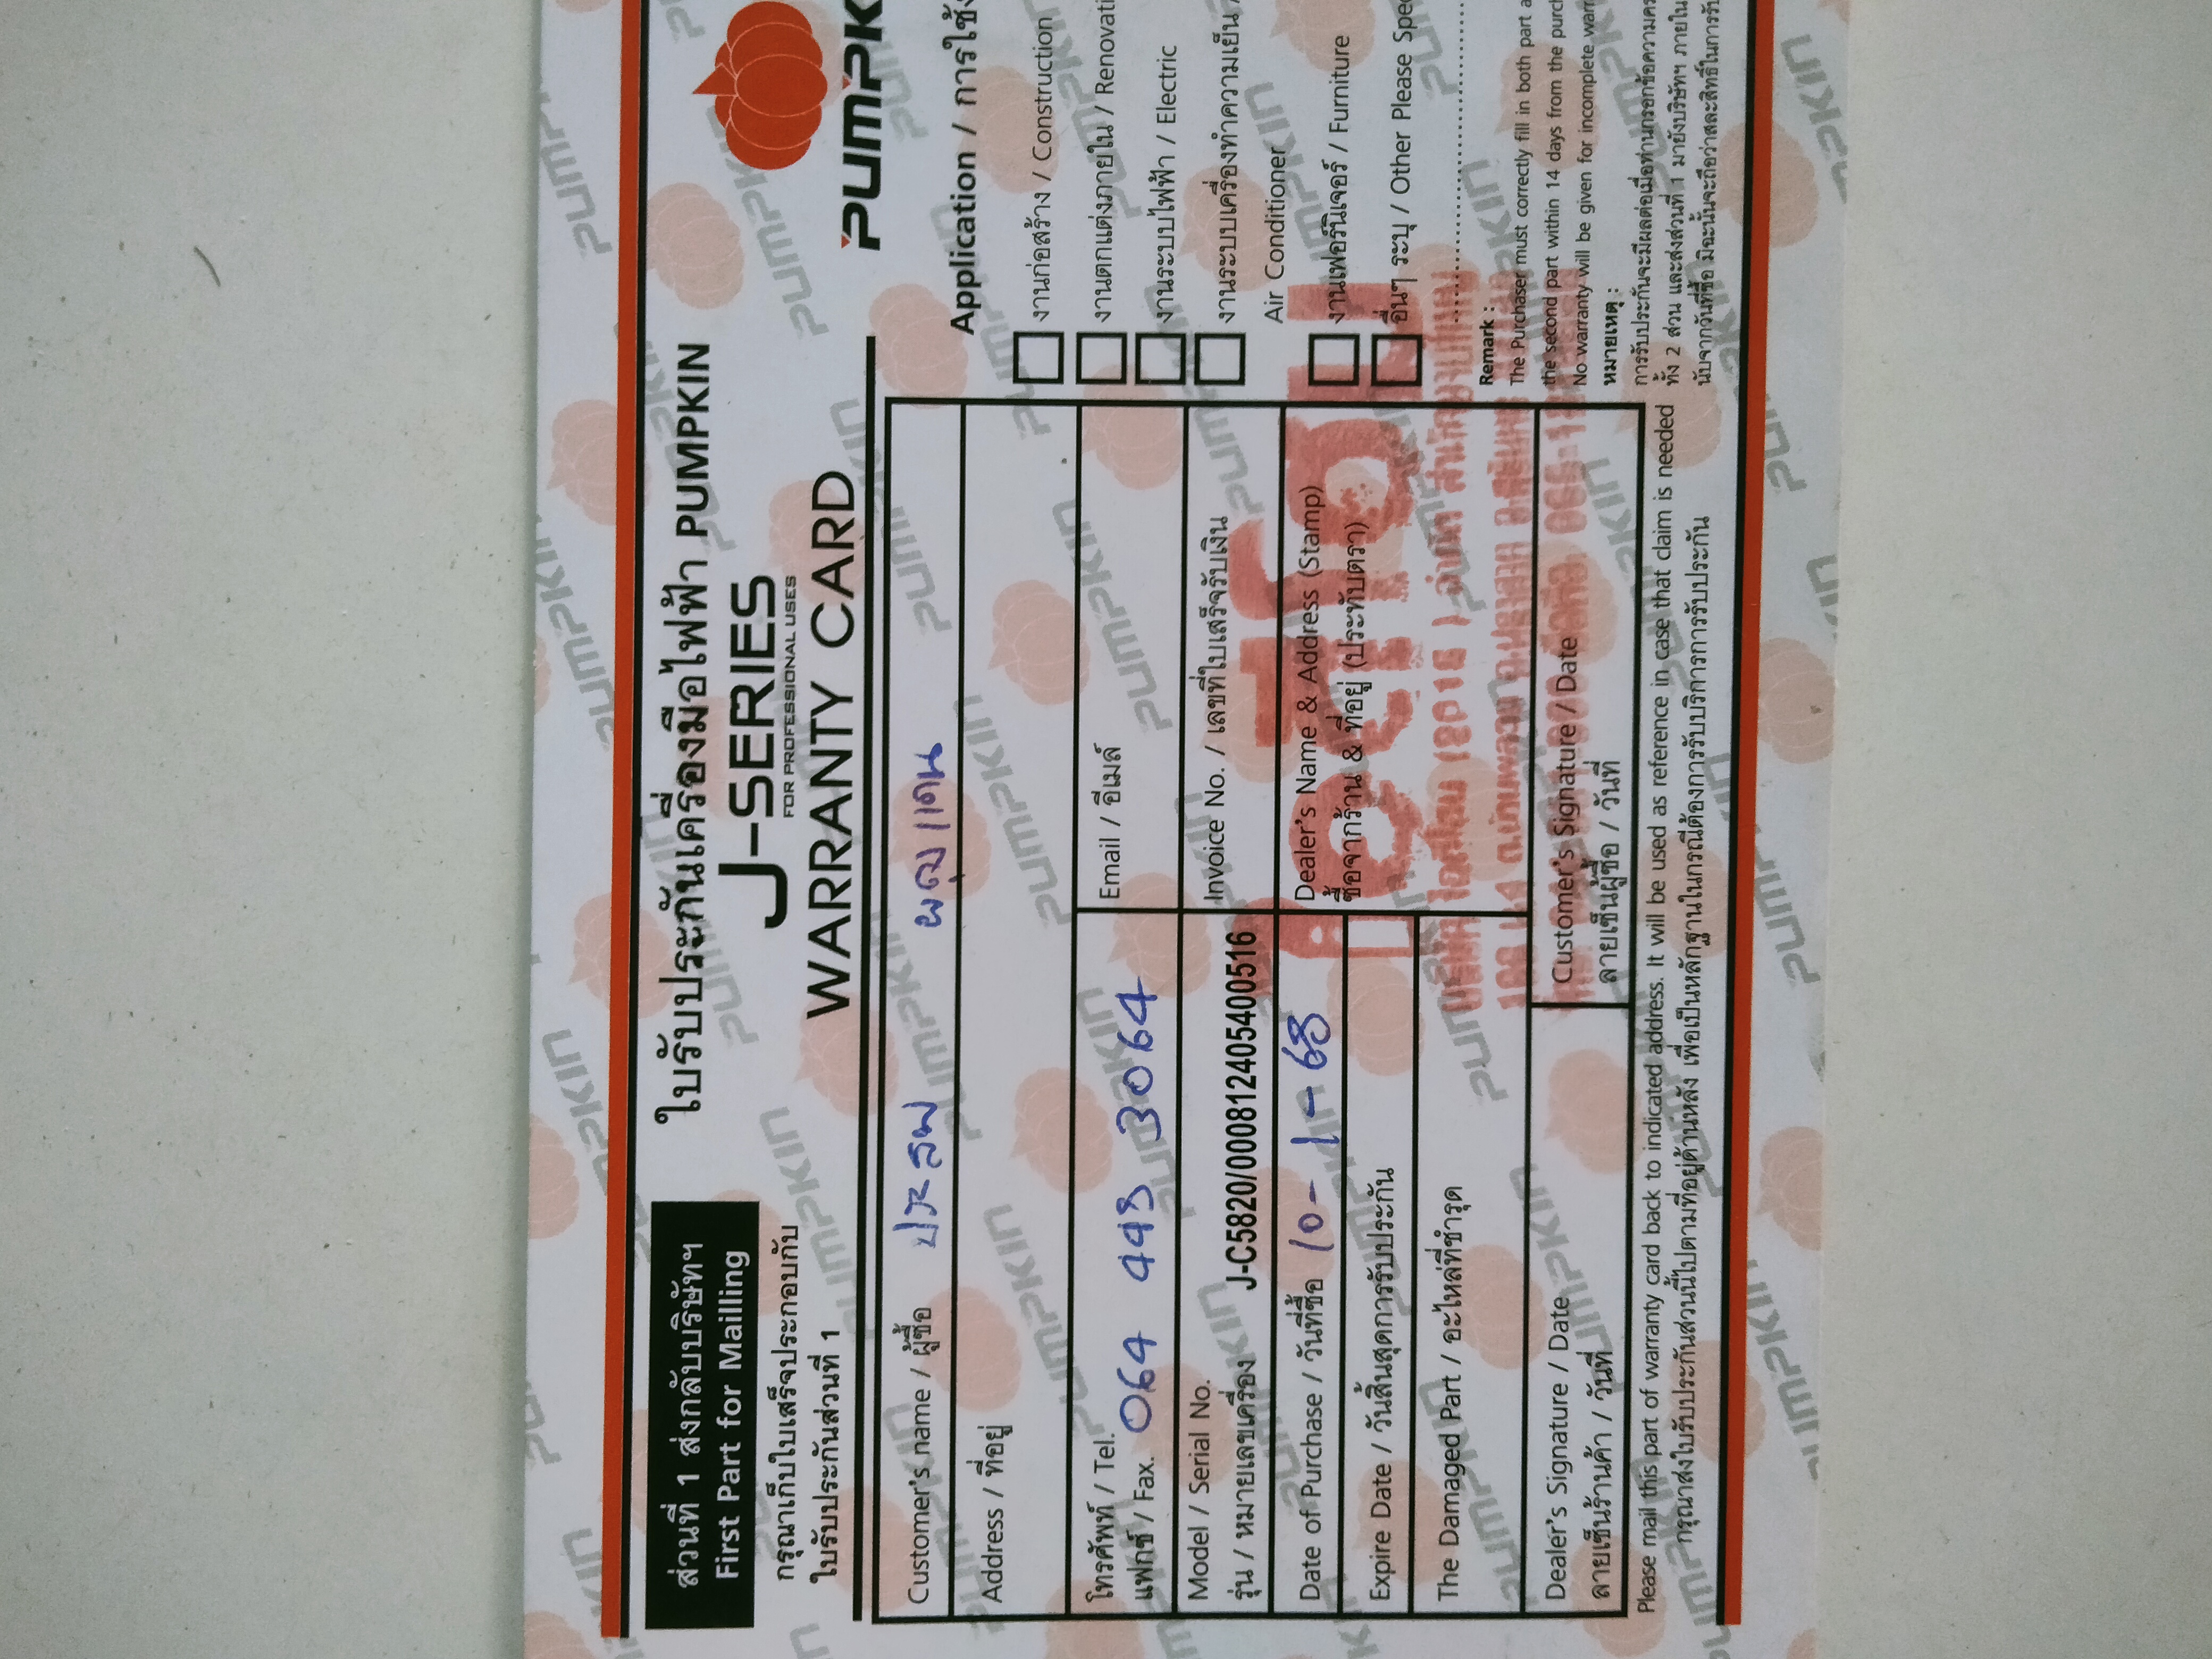 ส่วนที่ 1 ส่งกลับบริษัทฯ
First Part for Mailling
กรุณาเก็บใบเสร็จประกอบกับ
ใบรับประกันส่วนที่ 1
ใบรับประกันเครื่องมือไฟฟ้า PUMPKIN
J-SERIES
FOR PROFESSIONAL USES
WARRANTY CARD
PUMPK
Customer's name / ผู้ซื้อ
Address / ที่อยู่
โทรศัพท์ / Tel.
แฟกซ์ / Fax. 064 449 3064
Email / อีเมล์
Model / Serial No.
รุ่น / หมายเลขเครื่อง J-C5820/000812405400516
Invoice No. / เลขที่ใบเสร็จรับเงิน
Date of Purchase / วันที่ซื้อ 10-1-68
Dealer's Name & Address (Stamp)
ซื้อจากร้าน & ที่อยู่ (ประทับตรา)
Expire Date / วันสิ้นสุดการรับประกัน
The Damaged Part / อะไหล่ที่ชำรุด
Dealer's Signature / Date
ลายเซ็นร้านค้า / วันที่
Customer's Signature / Date
ลายเซ็นผู้ซื้อ / วันที่
Please mail this part of warranty card back to indicated address. It will be used as reference in case that claim is needed
กรุณาส่งใบรับประกันส่วนนี้ไปตามที่อยู่ด้านหลัง เพื่อเป็นหลักฐานในกรณีต้องการรับบริการการรับประกัน
Application / การใช้
งานก่อสร้าง / Construction
งานตกแต่งภายใน / Renovati
งานระบบไฟฟ้า / Electric
งานระบบเครื่องทำความเย็น /
Air Conditioner
งานเฟอร์นิเจอร์ / Furniture
อื่นๆ ระบุ / Other Please Spec
Remark :
The Purchaser must correctly fill in both part a
the second part within 14 days from the purch
No warranty will be given for incomplete warr
หมายเหตุ :
การรับประกันจะมีผลต่อเมื่อท่านกรอกข้อความคร
ทั้ง 2 ส่วน และส่งส่วนที่ 1 มายังบริษัทฯ ภายใน
นับจากวันที่ซื้อ มิฉะนั้นจะถือว่าสละสิทธิ์ในการรับ